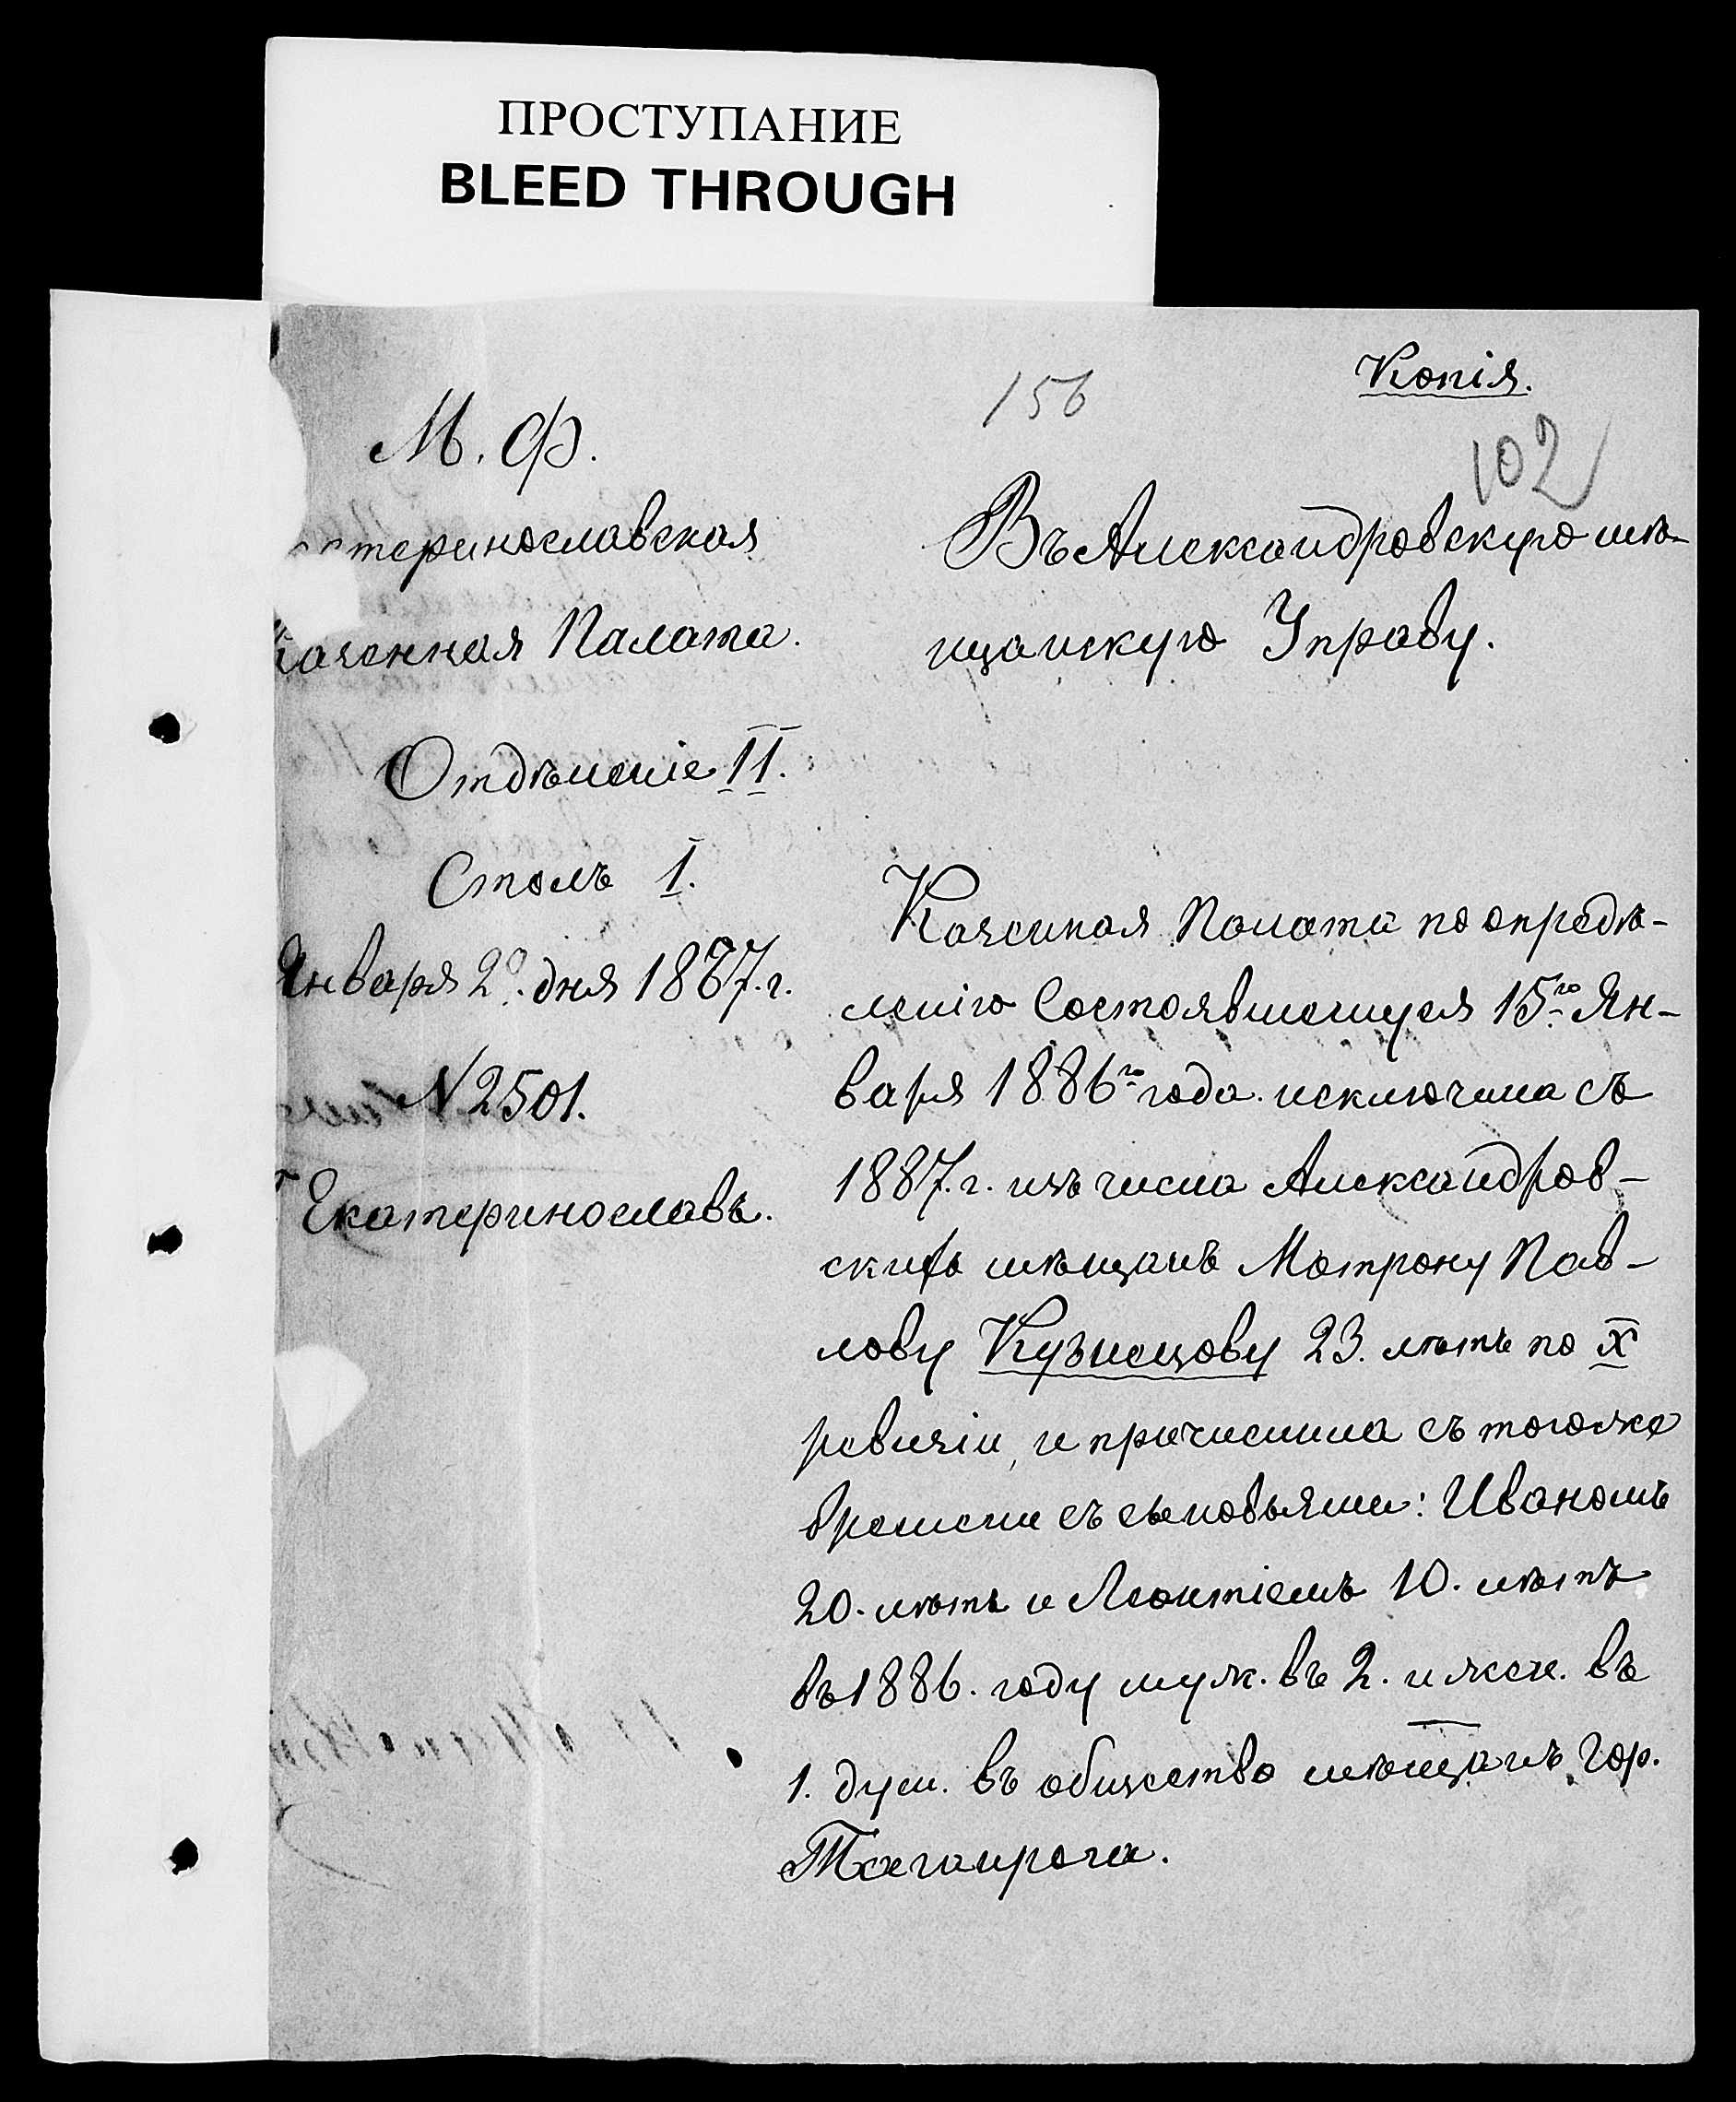 ПРОСТУПАНИЕ
BLEED THROUGH
Копія.
156
102
М. Ф.
теринославская
Казенная Палата.
Отдѣленіе II.
Столъ I.
Января 2º. дня 1887. г.
N 2501.
Екатеринославъ.
Въ Александровскую мѣ-
щанскую Управу.
Казенная Палата по опредѣ-
ленію Состоявшемуся 15го Ян-
варя 1886го года. исключила съ
1887. г. изъ числа Александров-
скихъ мѣщанъ Матрону Пав-
лову Кузнецову 23. лѣтъ по X
ревизіи, и причислила съ тогоже
времени съ сыновьями: Иваномъ
20. лѣтъ и Леонтіемъ 10. лѣтъ
въ 1886. году муж. въ 2. и жен. въ
1. душ. въ общество мѣщанъ гор.
Таганрога.